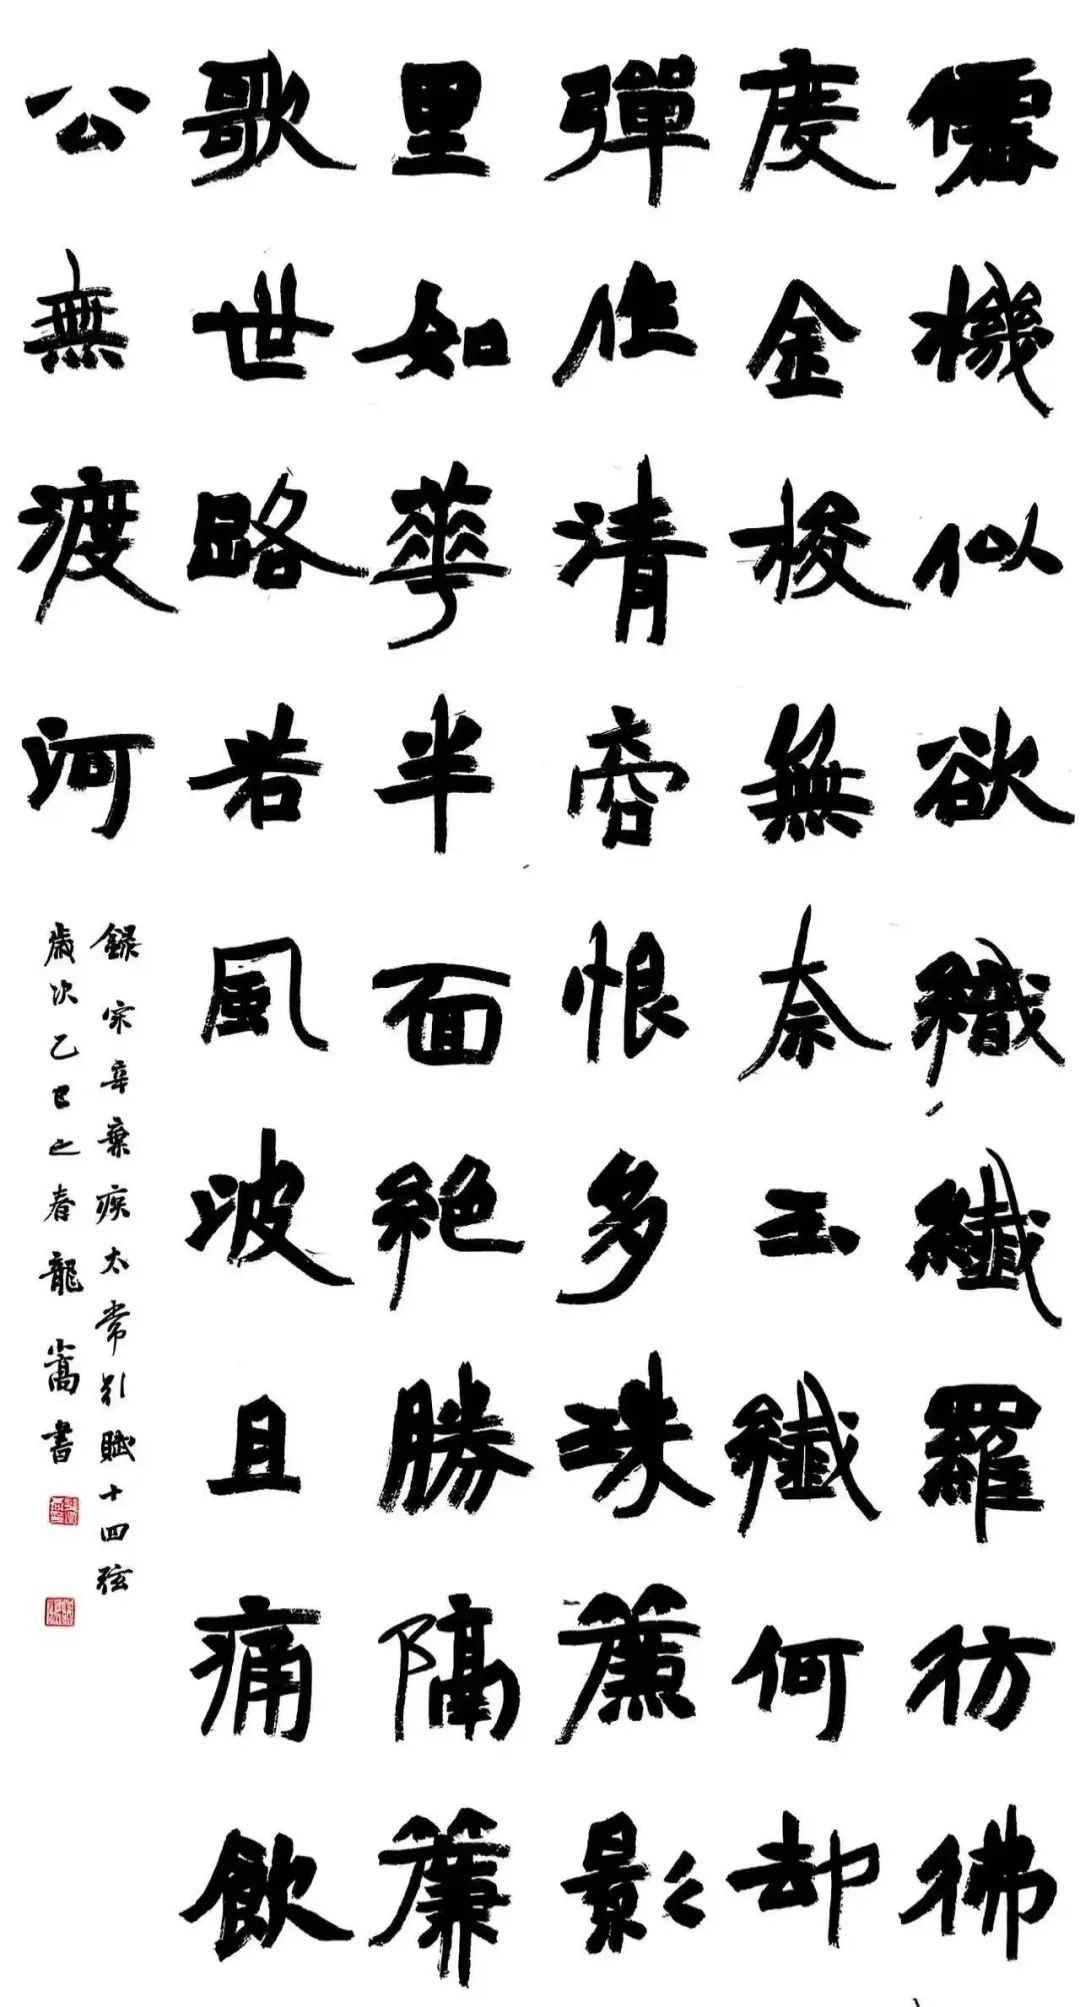 僊機似欲織纖羅彷彿
度金梭無奈玉纖何却
彈作清商恨多珠簾影
里如華半面絕勝隔簾
歌世路若風波且痛飲
公無渡河
録宋辛棄疾太常引賦十四弦
歲次乙巳之春龍嵩書